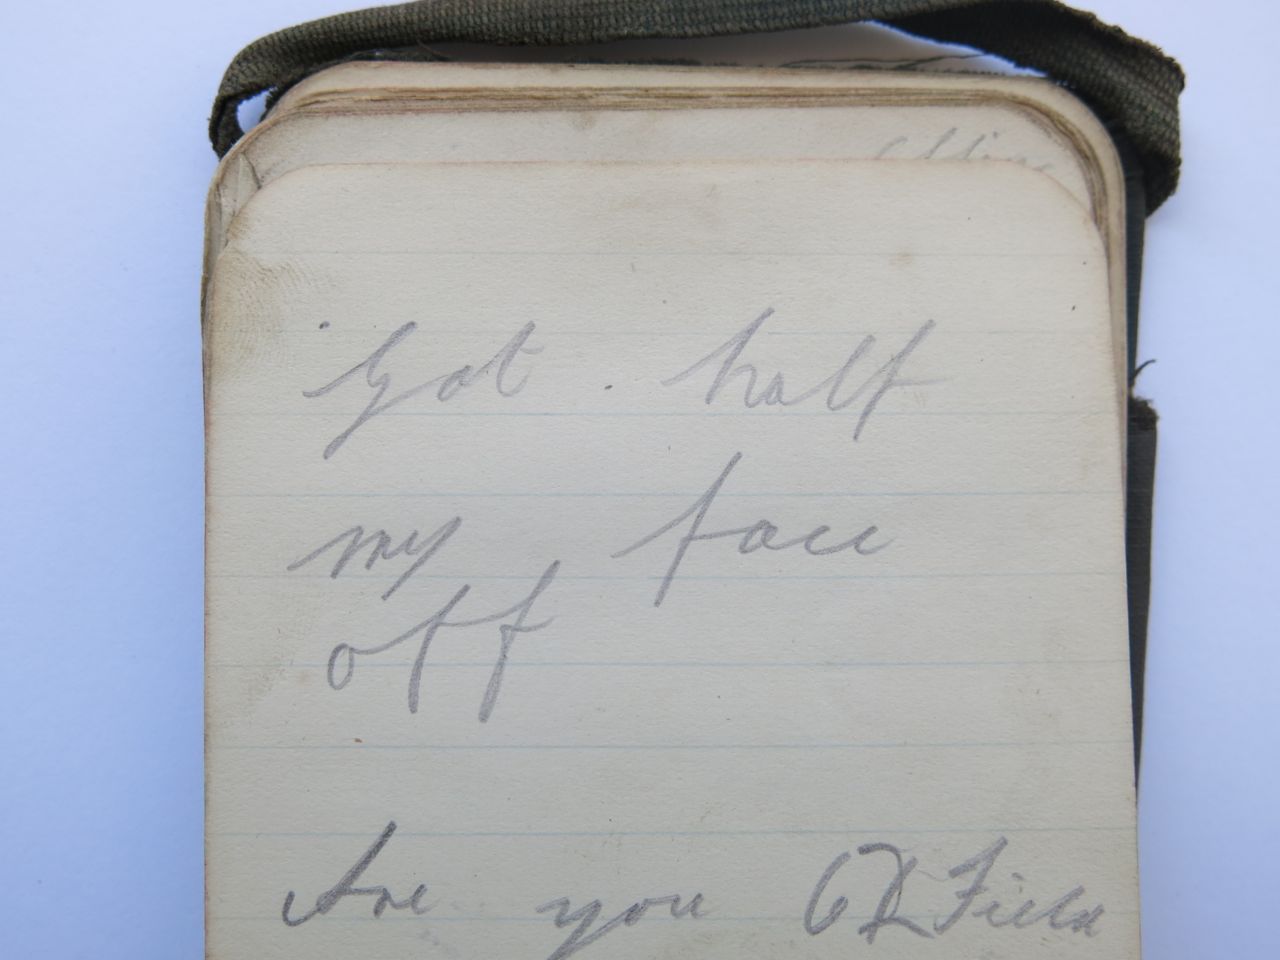 Got half
my face
off
Are you Field